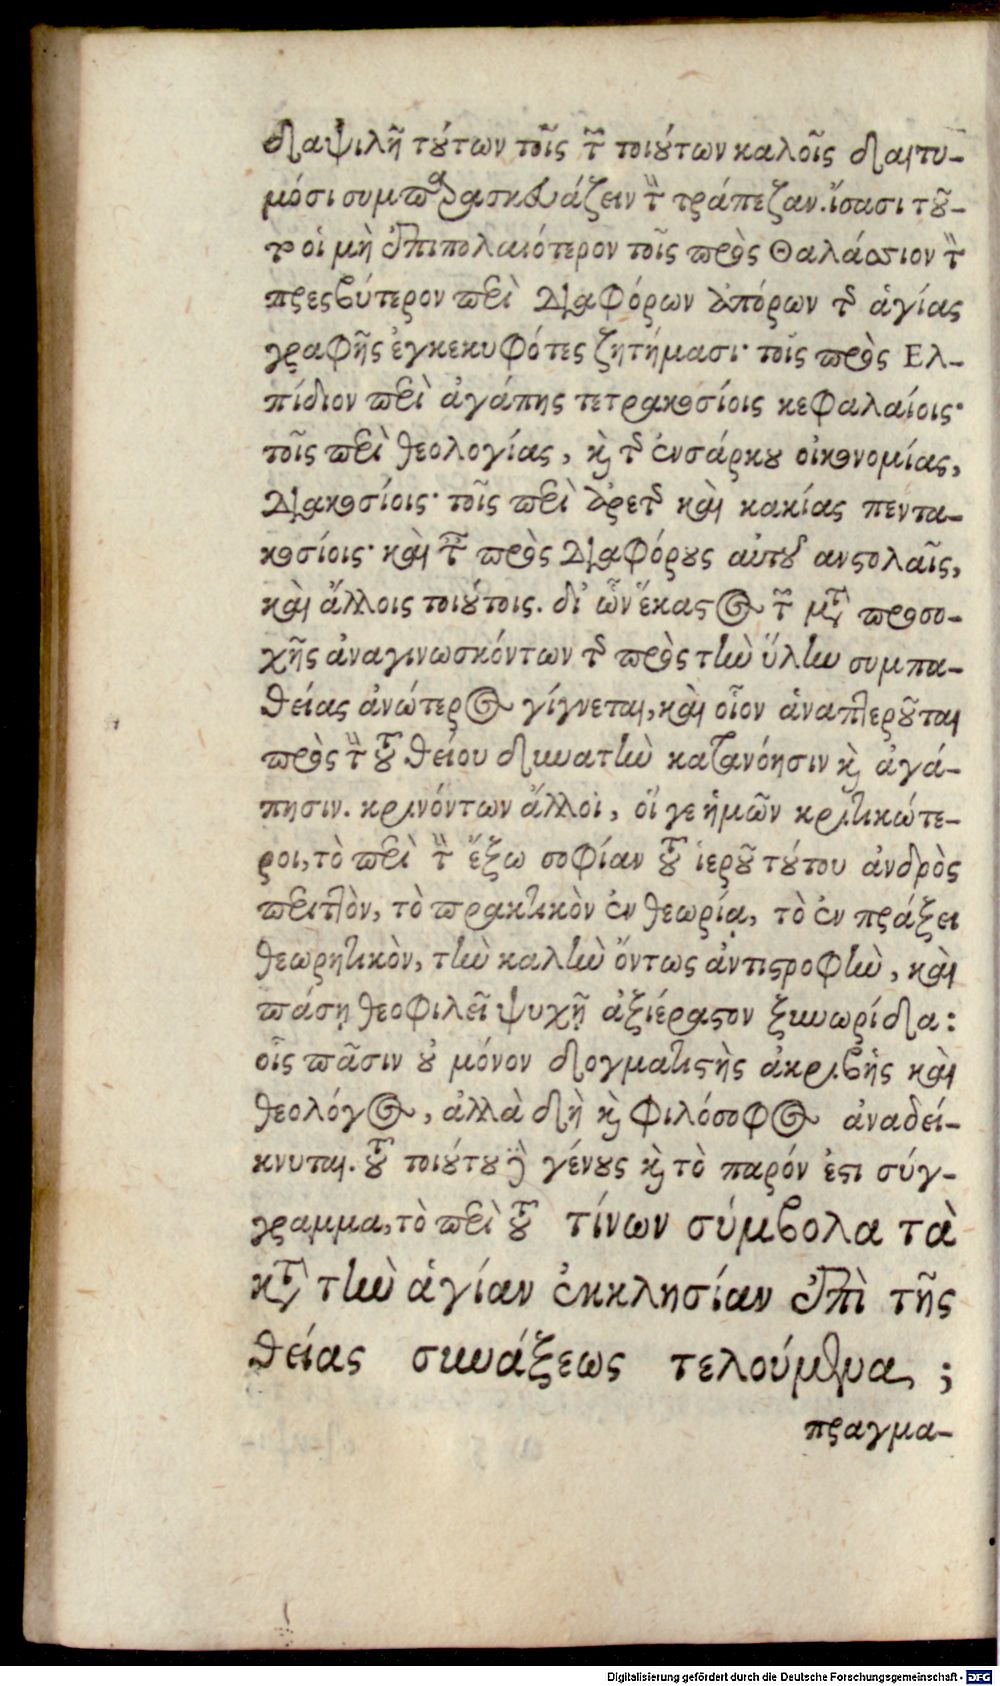 δαψιλῆ τούτων τοῖς τῶν τοιούτων καλοῖς δαιτυ-
μόσι συμπαρασκευάζειν τὴν τράπεζαν. ἴσασι τοῦ-
το οἱ μὴ ἐπιπολαιότερον τοῖς πρὸς Θαλάσσιον τὸν
πρεσβύτερον περὶ διαφόρων ἀπόρων τῆς ἁγίας
γραφῆς ἐγκεκυφότες ζητήμασι· τοῖς πρὸς Ελ-
πίδιον περὶ ἀγάπης τετρακοσίοις κεφαλαίοις·
τοῖς περὶ θεολογίας, καὶ τῆς ἐνσάρκου οἰκονομίας,
διακοσίοις· τοῖς περὶ ἀρετῆς καὶ κακίας πεντα-
κοσίοις· καὶ ταῖς πρὸς διαφόρους αὐτοῦ ἀνστολαῖς,
καὶ ἄλλοις τοιούτοις. δι' ὧν ἕκαστος τῶν μετὰ προσο-
χῆς ἀναγινωσκόντων τῆς πρὸς τὴν ὕλην συμπα-
θείας ἀνώτερος γίγνεται, καὶ οἷον ἀναπτεροῦται
πρὸς τὴν τοῦ θείου δυνατὴν κατανόησιν καὶ ἀγά-
πησιν. κρινόντων ἄλλοι, οἵ γε ἡμῶν κριτικώτε-
ροι, τὸ περὶ τὴν ἔξω σοφίαν τοῦ ἱεροῦ τούτου ἀνδρὸς
περιττὸν, τὸ πρακτικὸν ἐν θεωρίᾳ, τὸ ἐν πράξει
θεωρητικὸν, τὴν καλὴν ὄντως ἀντιστροφὴν, καὶ
πάσῃ θεοφιλεῖ ψυχῇ ἀξιέραστον ξυνωρίδα:
οἷς πᾶσιν οὐ μόνον δογματιστὴς ἀκριβὴς καὶ
θεολόγος, ἀλλὰ δὴ καὶ φιλόσοφος ἀναδεί-
κνυται. τοῦ τοιούτου γὰρ γένους καὶ τὸ παρόν ἐστι σύγ-
γραμμα, τὸ περὶ τοῦ τίνων σύμβολα τὰ
κατὰ τὴν ἁγίαν ἐκκλησίαν ἐπὶ τῆς
θείας συνάξεως τελούμενα;
πραγμα-
Digitalisierung gefördert durch die Deutsche Forschungsgemeinschaft - DFG